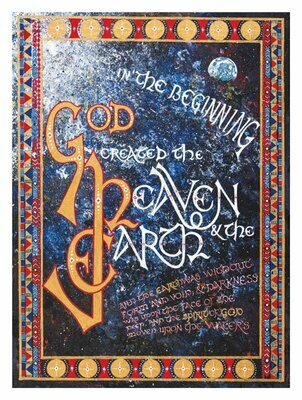 IN THE BEGINNING
GOD
CREATED THE
HEAVEN
& THE
EARTH
AND THE EARTH WAS WITHOUT
FORM AND VOID, & DARKNESS
WAS UPON THE FACE OF THE
DEEP. AND THE SPIRIT OF GOD
MOVED UPON THE WATERS